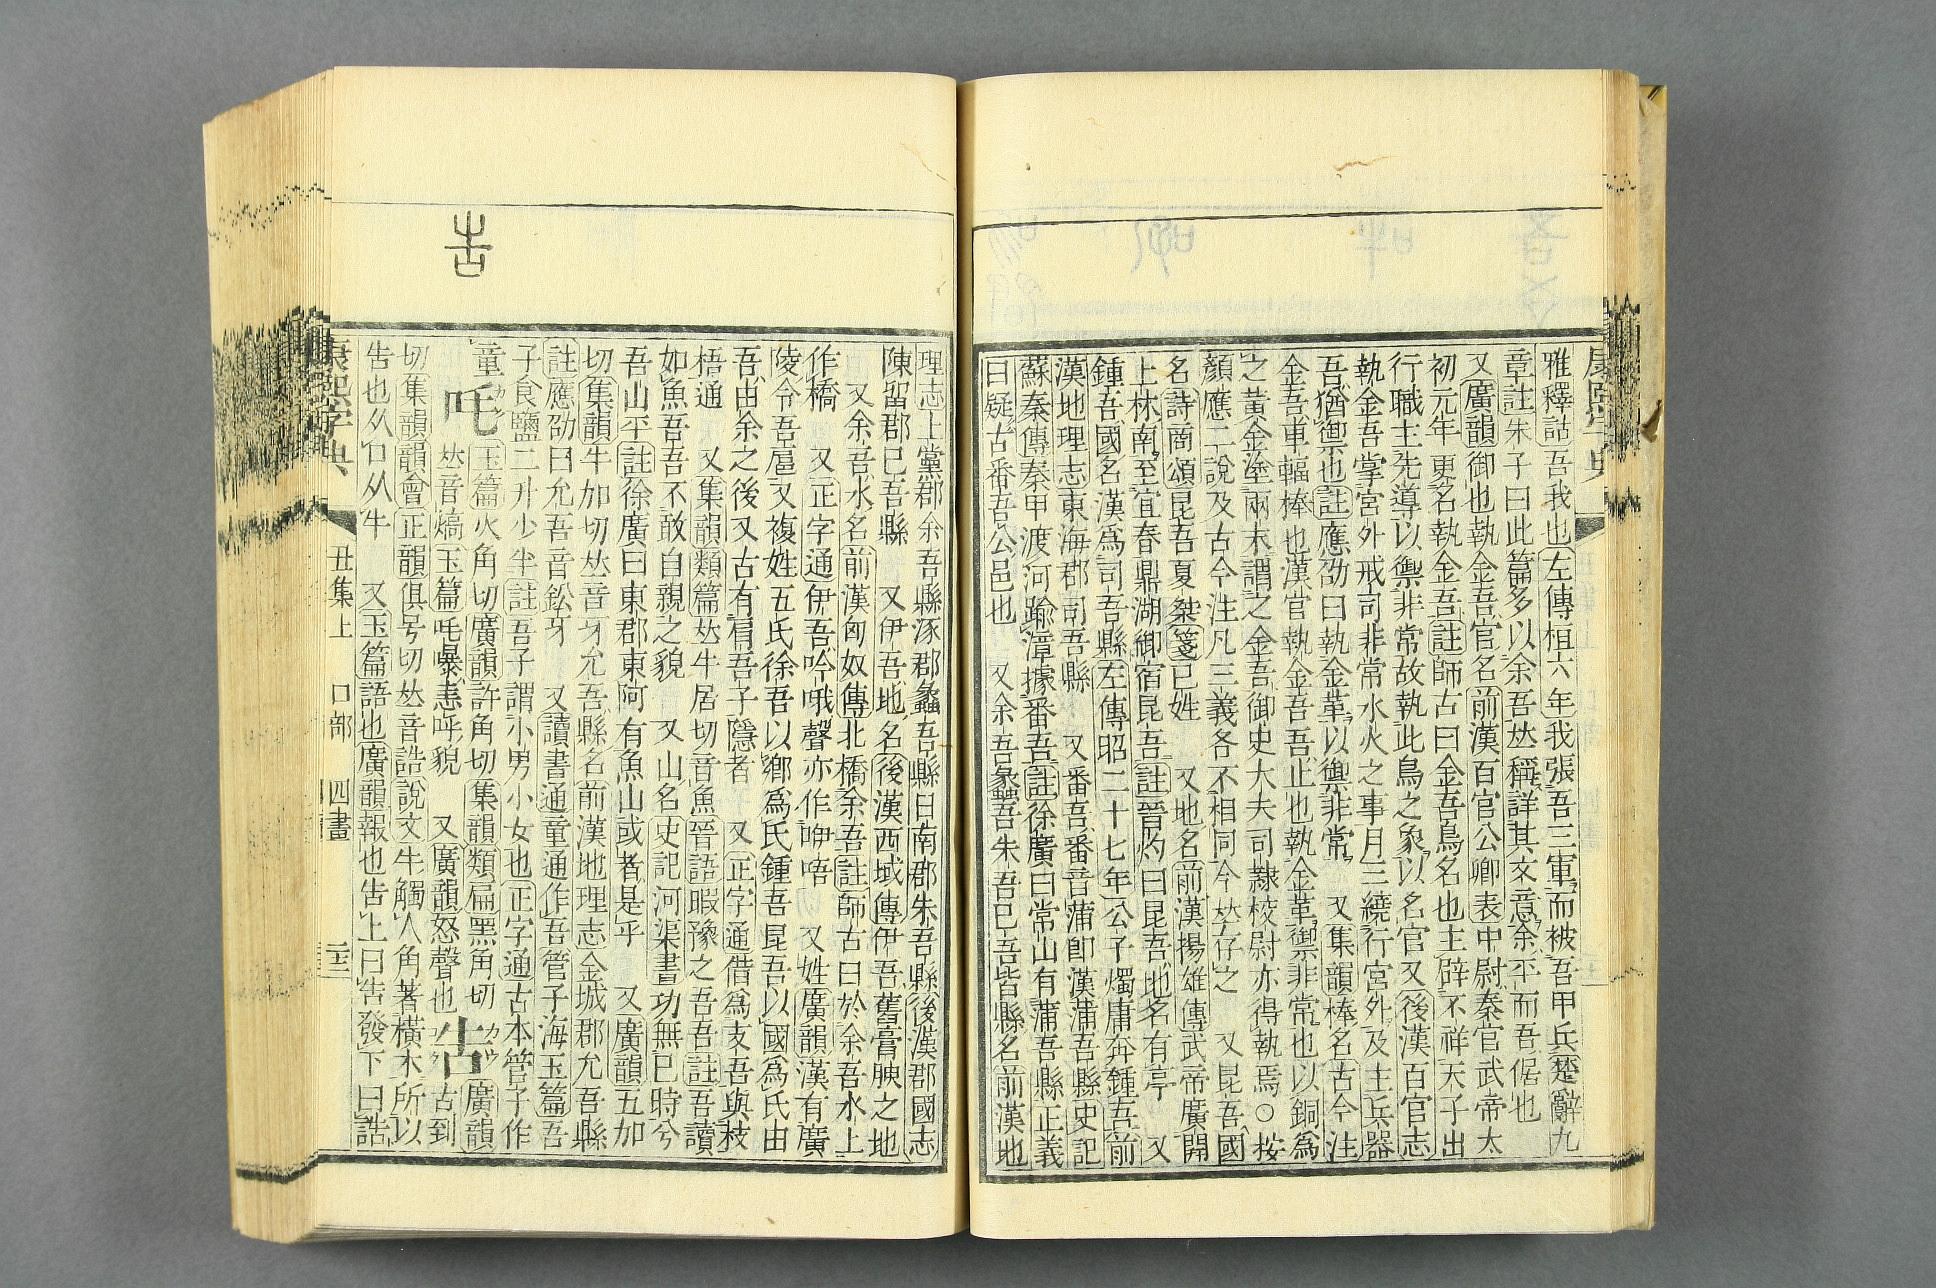 雅釋詁吾我也左傳桓六年我張吾三軍而被吾甲兵楚辭九
章註朱子曰此篇多以余吾𠀤稱詳其文意余平而吾倨也
又廣韻御也執金吾官名前漢百官公卿表中尉秦官武帝太
初元年更名執金吾註師古曰金吾鳥名也主辟不祥天子出
行職主先導以禦非常故執此鳥之象以名官又後漢百官志
執金吾掌宮外戒司非常水火之事月三繞行宮外及主兵器
吾猶禦也註應劭曰執金革以禦非常 又集韻棒名古今注
金吾車輻棒也漢官執金吾吾止也執金革禦非常也以銅為
之黃金塗兩末謂之金吾御史大夫司隸校尉亦得執焉○按
顏應二說及古今注凡三義各不相同今𠀤存之 又昆吾國
名詩商頌昆吾夏桀箋已姓 又地名前漢揚雄傳武帝廣開
上林南至宜春鼎湖御宿昆吾註晉灼曰昆吾地名有亭 又
鍾吾國名漢為司吾縣左傳昭二十七年公子燭庸奔鍾吾前
漢地理志東海郡司吾縣 又番吾番音蒲卽漢蒲吾縣史記
蘇秦傳秦甲渡河踰漳據番吾註徐廣曰常山有蒲吾縣正義
曰疑古番吾公邑也 又余吾彖蠡吾朱吾巳吾皆縣名前漢地
理志上黨郡余吾縣涿郡蠡吾縣日南郡朱吾縣後漢郡國志
陳留郡巳吾縣 又伊吾地名後漢西域傳伊吾舊膏腴之地
又余吾水名前漢匈奴傳北橋余吾註師古曰於余吾水上
作橋 又正字通伊吾吟哦聲亦作咿唔 又姓廣韻漢有廣
陵令吾扈又複姓五氏徐吾以鄉為氏鍾吾昆吾以國為氏由
吾由余之後又古有肩吾子隱者 又正字通借為支吾與枝
梧通 又集韻類篇𠀤牛居切音魚晉語暇豫之吾吾註吾讀
如魚吾吾不敢自親之貌 又山名史記河渠書功無已時兮
吾山平註徐廣曰東郡東阿有魚山或者是乎 又廣韻五加
切集韻牛加切𠀤音牙允吾縣名前漢地理志金城郡允吾縣
註應劭曰允吾音鉛牙 又讀書通童通作吾管子海玉篇吾
子食鹽二升少半註吾子謂小男小女也正字通古本管子作
童 吒 玉篇火角切廣韻許角切集韻類篇黑角切
𠀤音熇玉篇吒嚗恚呼貌 又廣韻怒聲也 告 廣韻古到
切集韻韻會正韻俱号切𠀤音誥說文牛觸人角著橫木所以
告也从口从牛 又玉篇語也廣韻報也告上曰告發下曰誥
康熙字典 丑集上 口部 四畫
康熙字典